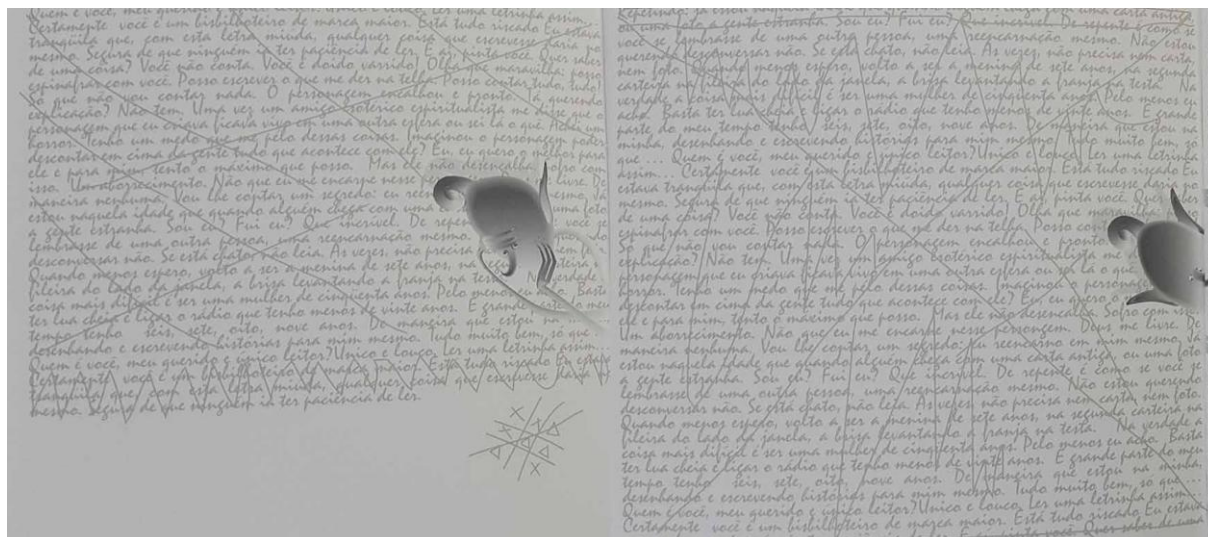 Quem é você, meu querido e único leitor? Único e louco. Ler uma letrinha assim...
Certamente você é um bisbilhoteiro de marca maior. Está tudo riscado Eu estava
tranquila que, com esta letra miúda, qualquer coisa que escrevesse daria no
mesmo. Segura de que ninguém ia ter paciência de ler. E aí, pinta você. Quer saber
de uma coisa? Você não conta. Você é doido varrido! Olha que maravilha: posso
espinafrar com você. Posso escrever o que me der na telha. Posso contar tudo, tudo!
Só que não vou contar nada. O personagem encalhou e pronto. Tá querendo
explicação? Não tem. Uma vez um amigo esotérico espiritualista me disse que o
personagem que eu criava ficava vivo em uma outra esfera ou sei lá o que. Achei um
horror. Tenho um medo que me pelo dessas coisas. Imaginou o personagem poder
descontar em cima da gente tudo que acontece com ele? Eu, eu quero o melhor para
ele e para mim, tento o máximo que posso. Mas ele não desencalha. Sofro com
isso. Um aborrecimento. Não que eu me encarne nesse livre. De
maneira nenhuma, Vou lhe contar um segredo: eu mesmo, Já
estou naquela idade que quando alguém chega com uma uma foto
a gente estranha. Sou eu? Fui eu? Que incrível. De você se
lembrasse de uma outra pessoa, uma reencarnação mesmo.
desconversar não. Se está chato, não leia. As vezes, não precisa
Quando menos espero, volto a ser a menina de sete anos, na
fileira do lado da janela, a brisa levantando a franja na testa. Na verdade a
coisa mais difícil é ser uma mulher de cinquenta anos. Pelo menos eu acho. Basta
ter lua cheia e ligar o rádio que tenho menos de vinte anos. E grande do meu
tempo tenho seis, sete, oito, nove anos. De maneira que estou na
desenhando e escrevendo histórias para mim mesmo. Tudo muito bem, só que
Quem é você, meu querido e único leitor? Único e louco, Ler uma letrinha assim...
Certamente você é um bisbilhoteiro de marca maior. Está tudo riscado Eu estava
tranquila que, com esta letra miúda, qualquer coisa que escrevesse daria no
mesmo. Segura de que ninguém ia ter paciência de ler.
com uma carta antiga,
ou uma foto a gente estranha. Sou eu? Fui eu? Que incrível. De repente é como se
você se lembrasse de uma outra pessoa, uma reencarnação mesmo. Não estou
querendo desconversar não. Se está chato, não leia. As vezes, não precisa nem carta,
nem foto. Quando menos espero, volto a ser a menina de sete anos, na segunda
carteira na fileira do lado da janela, a brisa levantando a franja na testa. Na
verdade a coisa mais difícil é ser uma mulher de cinquenta anos. Pelo menos eu
acho. Basta ter lua cheia e ligar o rádio que tenho menos de vinte anos. E grande
parte do meu tempo tenho seis, sete, oito, nove anos. De maneira que estou na
minha, desenhando e escrevendo histórias para mim mesmo. Tudo muito bem, só
que ... Quem é você, meu querido e único leitor? Único e louco, Ler uma letrinha
assim... Certamente você é um bisbilhoteiro de marca maior. Está tudo riscado Eu
estava tranquila que, com esta letra miúda, qualquer coisa que escrevesse daria no
mesmo. Segura de que ninguém ia ter paciência de ler. E aí, pinta você. Quer saber
de uma coisa? Você não conta. Você é doido varrido! Olha que maravilha
espinafrar com você. Posso escrever o que me der na telha. Posso
Só que não vou contar nada. O personagem encalhou e pronto.
explicação? Não tem. Uma vez um amigo esotérico espiritualista me
personagem que eu criava ficava vivo em uma outra esfera ou sei lá o que.
horror. Tenho um medo que me pelo dessas coisas. Imaginou o personagem
descontar em cima da gente tudo que acontece com ele? Eu, eu quero o
ele e para mim, tento o máximo que posso. Mas ele não desencalha. Sofro com isso.
Um aborrecimento. Não que eu me encarne nesse personagem. Deus me livre. De
maneira nenhuma, Vou lhe contar um segredo: eu reencarno em mim mesmo, Já
estou naquela idade que quando alguém chega com uma carta antiga, ou uma foto
a gente estranha. Sou eu? Fui eu? Que incrível. De repente é como se você se
lembrasse de uma outra pessoa, uma reencarnação mesmo. Não estou querendo
desconversar não. Se está chato, não leia. As vezes, não precisa nem carta, nem foto.
Quando menos espero, volto a ser a menina de sete anos, na segunda carteira na
fileira do lado da janela, a brisa levantando a franja na testa. Na verdade a
coisa mais difícil é ser uma mulher de cinquenta anos. Pelo menos eu acho. Basta
ter lua cheia e ligar o rádio que tenho menos de vinte anos. E grande parte do meu
tempo tenho seis, sete, oito, nove anos. De maneira que estou na minha,
desenhando e escrevendo histórias para mim mesmo. Tudo muito bem, só que ...
Quem é você, meu querido e único leitor? Único e louco, Ler uma letrinha assim...
Certamente você é um bisbilhoteiro de marca maior. Está tudo riscado Eu estava